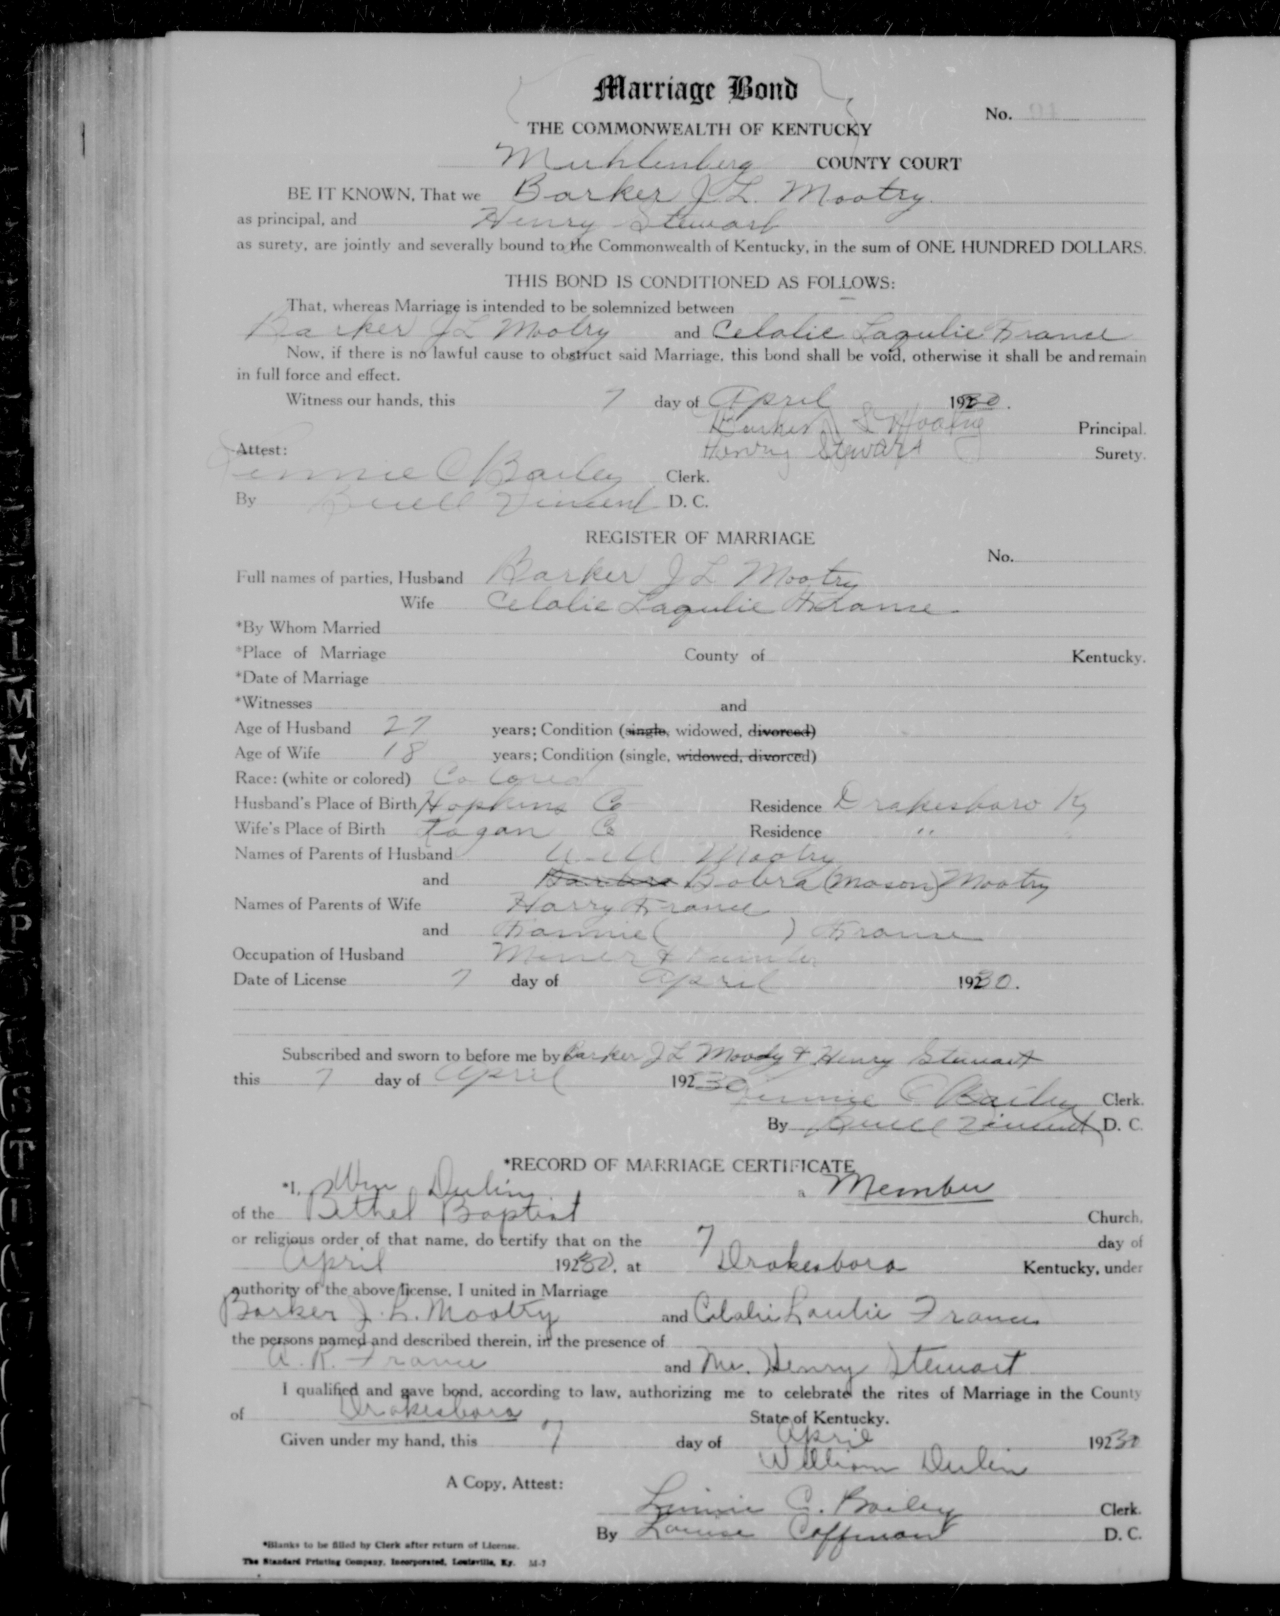 Marriage Bond
No.
THE COMMONWEALTH OF KENTUCKY
Muhlenberg COUNTY COURT
BE IT KNOWN, That we Barker J. L. Mootry.
as principal, and Henry Stewart
as surety, are jointly and severally bound to the Commonwealth of Kentucky, in the sum of ONE HUNDRED DOLLARS.
THIS BOND IS CONDITIONED AS FOLLOWS:
That, whereas Marriage is intended to be solemnized between
Barker J L Mootry and Celalie Laqulie France
Now, if there is no lawful cause to obstruct said Marriage, this bond shall be void, otherwise it shall be and remain
in full force and effect.
Witness our hands, this 7 day of April 1930.
Barker J L Mootry Principal.
Attest: Henry Stewart Surety.
Linnie C Bailey Clerk.
By Buell Vincent D. C.
REGISTER OF MARRIAGE
No.
Full names of parties, Husband Barker J L Mootry
Wife Celalie Laqulie France
*By Whom Married
*Place of Marriage County of Kentucky.
*Date of Marriage
*Witnesses and
Age of Husband 27 years; Condition (single, widowed, divorced)
Age of Wife 18 years; Condition (single, widowed, divorced)
Race: (white or colored) Colored
Husband's Place of Birth Hopkins Co Residence Drakesboro Ky
Wife's Place of Birth Logan Co Residence " "
Names of Parents of Husband Will Mootry
and Barbra Bobra (Mason) Mootry
Names of Parents of Wife Harry France
and Fannie ( ) France
Occupation of Husband Miner &
Date of License 7 day of April 1930.
Subscribed and sworn to before me by Barker J L Moody & Henry Stewart
this 7 day of April 192 30
Linnie C Bailey Clerk.
By Buell Vincent D. C.
*RECORD OF MARRIAGE CERTIFICATE
*I, Wm Dulin a Member
of the Bethel Baptist Church,
or religious order of that name, do certify that on the 7 day of
April 192 30, at Drakesboro Kentucky, under
authority of the above license, I united in Marriage
Barker J. L. Mootry and Celalie Laulie France
the persons named and described therein, in the presence of
A. R. France and Mr. Henry Stewart
I qualified and gave bond, according to law, authorizing me to celebrate the rites of Marriage in the County
of Drakesboro State of Kentucky.
Given under my hand, this 7 day of April 192 30
William Dulin
A Copy, Attest:
Linnie C. Bailey Clerk.
By Louise Coffman D. C.
*Blanks to be filled by Clerk after return of License.
The Standard Printing Company, Incorporated, Louisville, Ky. M-7